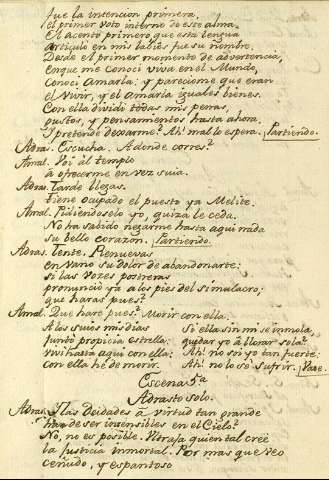 fue la intencion primera,
el primer voto interno de este alma.
El acento primero, que esta lengua
articuló en mis labios fue su nombre.
Desde el primer momento de advertencia,
en que me conocí viva en el Mundo,
conocí amarla; y pareciome que eran
el vivir, y el amarla iguales bienes.
Con ella dividí todas mis penas,
gustos, y pensamientos hasta ahora.
I pretende dexarme? Ah! mal lo espera. Partiendo.
Adras. Escucha. A donde corres?
Amal. Voi al templo
à ofrecerme en vez suia.
Adras. Tarde llegas.
tiene ocupado el puesto ya Melite.
Amal. Pidiendoselo yo, quizá le ceda.
No ha sabido negarme hasta aqui nada
su bello corazon. Partiendo.
Adras. Tente. Renuevas
en vano su dolor de abandonarte:
si las vozes postreras
pronunció ya a los pies del simulacro;
que haras pues?
Amal. Que haré pues? Morir con ella.
A los suios mis dias
juntó propicia estrella:
viví hasta aqui con ella:
con ella he de morir.
Si ella sin mi se inmola,
quedar yo à llorar sola?
Ah! no soi yo tan fuerte:
Ah! no lo sé sufrir. Vase.
Escena 5ª
Adrasto solo.
Adras. I las Deidades à virtud tan grande
han de ser insensibles en el Cielo?
No, no es posible. Ultraja quien tal cree
la Justicia inmortal. Por mas que veo
ceñudo, y espantoso